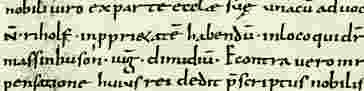 nobili uiro ex parte eccłae suę una cū aduoc
N. riholf. in ppriexatē habendū. in loco qui dr
massinbusoñ. iug̃. dimidiū. E contra uero in r
pensatione huius rei dedit p̄scriptus nobilis